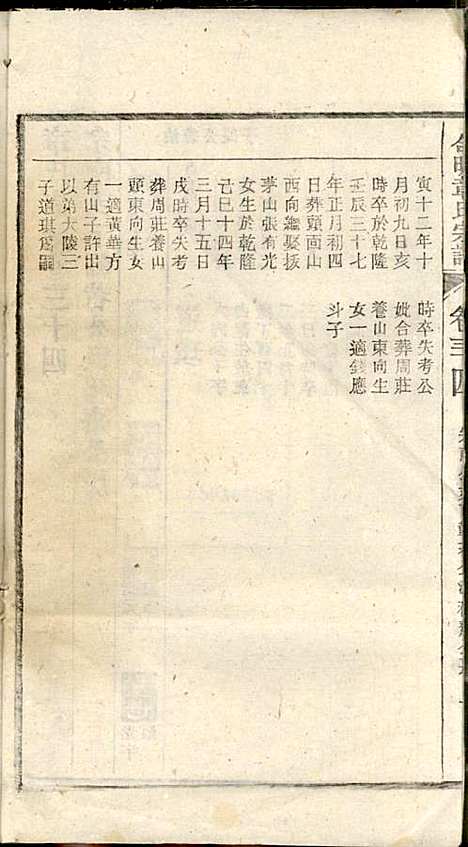 寅十二年十
月初九日亥
時卒於乾隆
壬辰三十七
年正月初四
日葬頭崗山
西向繼娶拔
茅山張有光
女生於乾隆
己巳十四年
三月十五日
戌時卒失考
葬周莊養山
頭東向生女
一適黃華方
有山子許出
以弟大陵三
子道琪爲嗣
時卒失考公
妣合葬周莊
養山東向生
女一適錢應
斗子
氏宗譜
卷三
四